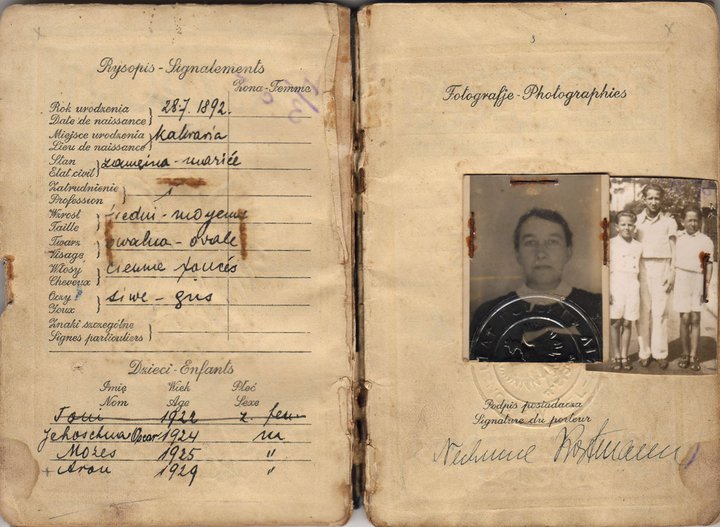 Rysopis - Signalements
Żona - Femme
Rok urodzenia
Date de naissance
28.7. 1892.
Miejsce urodzenia
Lieu de naissance
Kalwaria
Stan
Etat civil
zamężna - mariée
Zatrudnienie
Profession
Wzrost
Taille
średni - moyenne
Twarz
Visage
owalna - ovale
Włosy
Cheveux
ciemne foncés
Oczy
Yeux
siwe - gris
Znaki szczególne
Signes particuliers
Dzieci - Enfants
Imię Wiek Płeć
Nom Age Sexe
Toni 1922 ż. fem
Jehoschua Oscar 1924 m
Mozes 1925 "
+ Aron 1929 "
Fotografje - Photographies
Podpis posiadacza
Signature du porteur